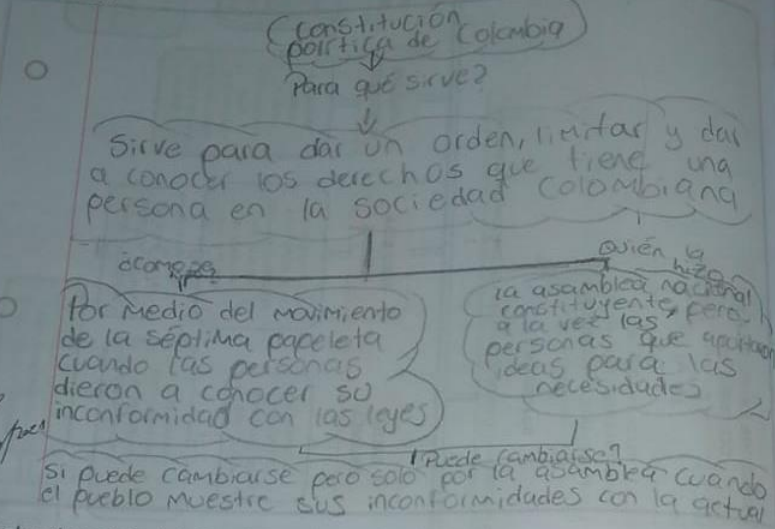 Constitución
política de Colombia
Para qué sirve?
Sirve para dar un orden, limitar y dar
a conocer los derechos que tiene una
persona en la sociedad Colombiana
Quién la
hizo
Por medio del movimiento
de la séptima papeleta
cuando las personas
dieron a conocer su
inconformidad con las leyes
la asamblea nacional
constituyente, pero
a la vez las
personas que aportaron
ideas para las
necesidades
Puede cambiarse?
Si puede cambiarse pero solo por la asamblea cuando
el pueblo muestre sus inconformidades con la actual